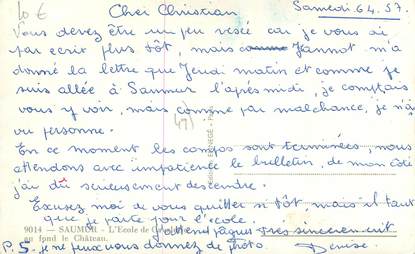 10 €
Cher Christian
Samedi 6.4.57.
Vous devez être un peu vexée car je vous ai
pas écrit plus tôt, mais comme Jannot m'a
donné la lettre que Jeudi matin et comme je
suis allée à Saumur l'après midi, je comptais
vous y voir, mais comme par malchance, je n'ai
vu personne.
49)
En ce moment les compos sont terminées, nous
attendons avec impatience le bulletin, de mon côté
j'ai dû serieusement descendre.
Excusez moi de vous quitter si tôt mais il faut
que je parte pour l'école.
9014 — SAUMUR - L'Ecole de
au fond le Château.
Très sincèrement
Denise.
P.S. je ne peux vous donnez de photo.